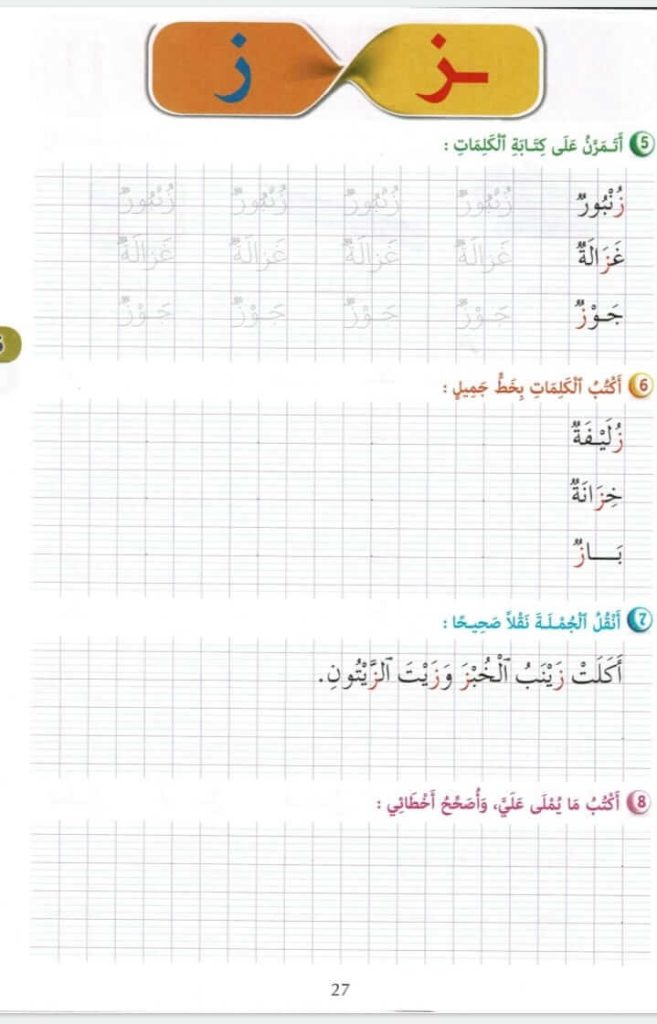 ـز ز
5 أَتَمَرَّنُ عَلَى كِتَابَةِ ٱلْكَلِمَاتِ :
زُنْبُورٌ زُنْبُورٌ زُنْبُورٌ زُنْبُورٌ زُنْبُورٌ
غَزَالَةٌ غَزَالَةٌ غَزَالَةٌ غَزَالَةٌ غَزَالَةٌ
جَـوْزٌ جَـوْزٌ جَـوْزٌ جَـوْزٌ جَـوْزٌ
6 أَكْتُبُ ٱلْكَلِمَاتِ بِخَطٍّ جَمِيلٍ :
زُلَيْـفَةٌ
خِزَانَةٌ
بَـــازٌ
7 أَنْقُلُ ٱلْجُمْلَةَ نَقْلاً صَحِيحًا :
أَكَلَتْ زَيْنَبُ ٱلْخُبْزَ وَزَيْتَ ٱلزَّيْتُونِ.
8 أَكْتُبُ مَا يُمْلَى عَلَيَّ، وَأُصَحِّحُ أَخْطَائِي :
27